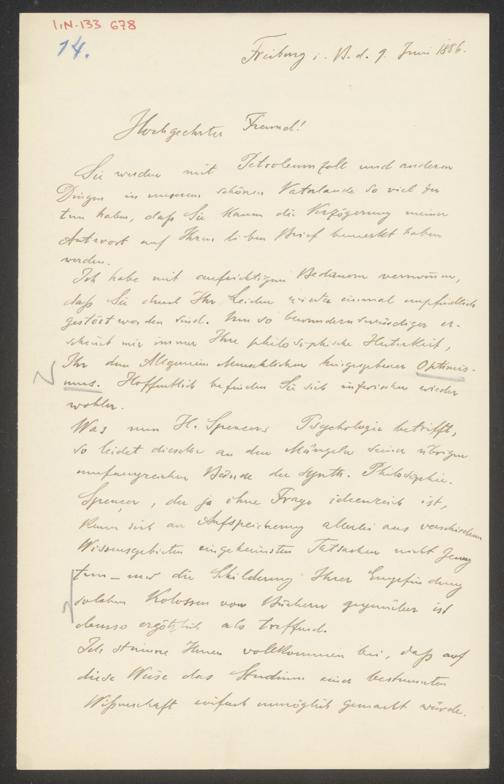 I.N. 133 678
14.
Freiburg i. B. d. 9. Juni 1886.
Hochgeehrter Freund!
Sie werden mit Petroleumzoll und anderen
Dingen in unserem schönen Vaterlande so viel zu
tun haben, daß Sie kaum die Verzögerung meiner
Antwort auf Ihren lieben Brief bemerkt haben
werden.
Ich habe mit aufrichtigem Bedauern vernommen,
daß Sie durch Ihr Leiden wieder einmal empfindlich
gestört worden sind. Um so bewundernswürdiger er-
scheint mir immer Ihre philosophische Heiterkeit,
Ihr dem Allgemein Menschlichen hingegebener Optimis-
mus. Hoffentlich befinden Sie sich inzwischen wieder
wohler.
Was nun H. Spencers Psychologie betrifft,
so leidet dieselbe an den Mängeln seiner übrigen
umfangreichen Bände der synth. Philosophie.
Spencer, der ja ohne Frage ideenreich ist,
kann sich an Aufspeicherung allerlei aus verschiedenen
Wissensgebieten eingeheimsten Tatsachen nicht genug
tun – und die Schilderung Ihrer Empfindung
solchen Kolossen von Büchern gegenüber ist
ebenso ergötzlich als treffend.
Ich stimme Ihnen vollkommen bei, daß auf
diese Weise das Studium einer bestimmten
Wissenschaft einfach unmöglich gemacht würde.